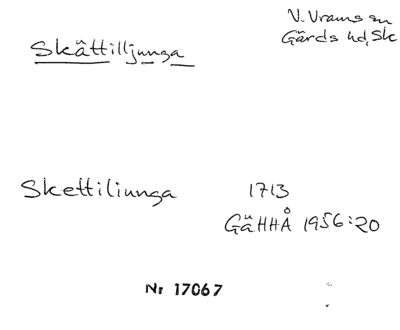 Skåttilljunga
V. Vrams sn
Gärds hd, Sk
Skettiliunga 1713
GäHHÅ 1956:20
Nr 17067